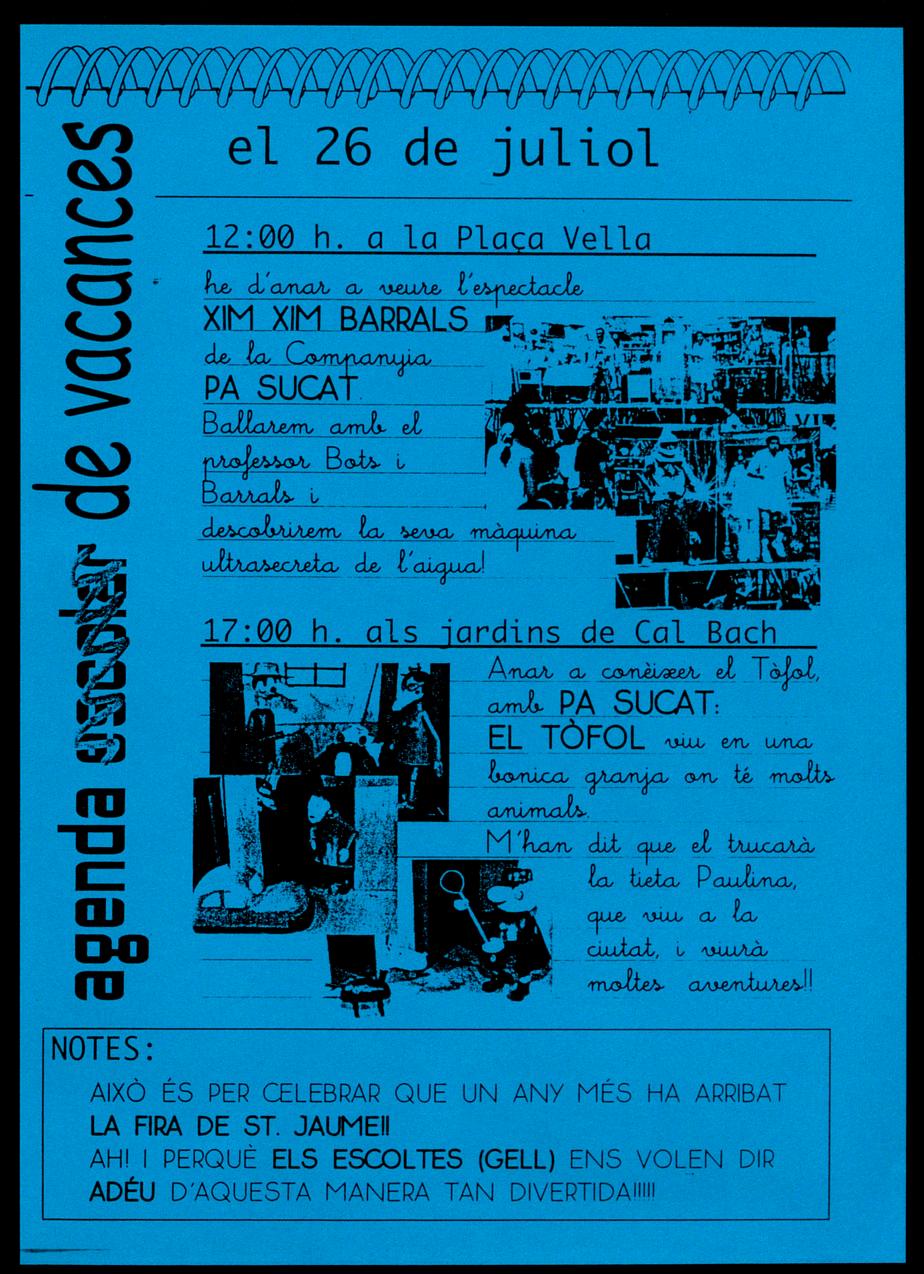 agenda escolar de vacances
el 26 de juliol
12:00 h. a la Plaça Vella
he d'anar a veure l'espectacle
XIM XIM BARRALS
de la Companyia
PA SUCAT.
Ballarem amb el
professor Bots i
Barrals i
descobrirem la seva màquina
ultrasecreta de l'aigua!
17:00 h. als jardins de Cal Bach
Anar a conèixer el Tòfol,
amb PA SUCAT:
EL TÒFOL viu en una
bonica granja on té molts
animals.
M'han dit que el trucarà
la tieta Paulina,
que viu a la
ciutat, i viurà
moltes aventures!!
NOTES:
AIXÒ ÉS PER CELEBRAR QUE UN ANY MÉS HA ARRIBAT
LA FIRA DE ST. JAUME!!
AH! I PERQUÈ ELS ESCOLTES (GELL) ENS VOLEN DIR
ADÉU D'AQUESTA MANERA TAN DIVERTIDA!!!!!